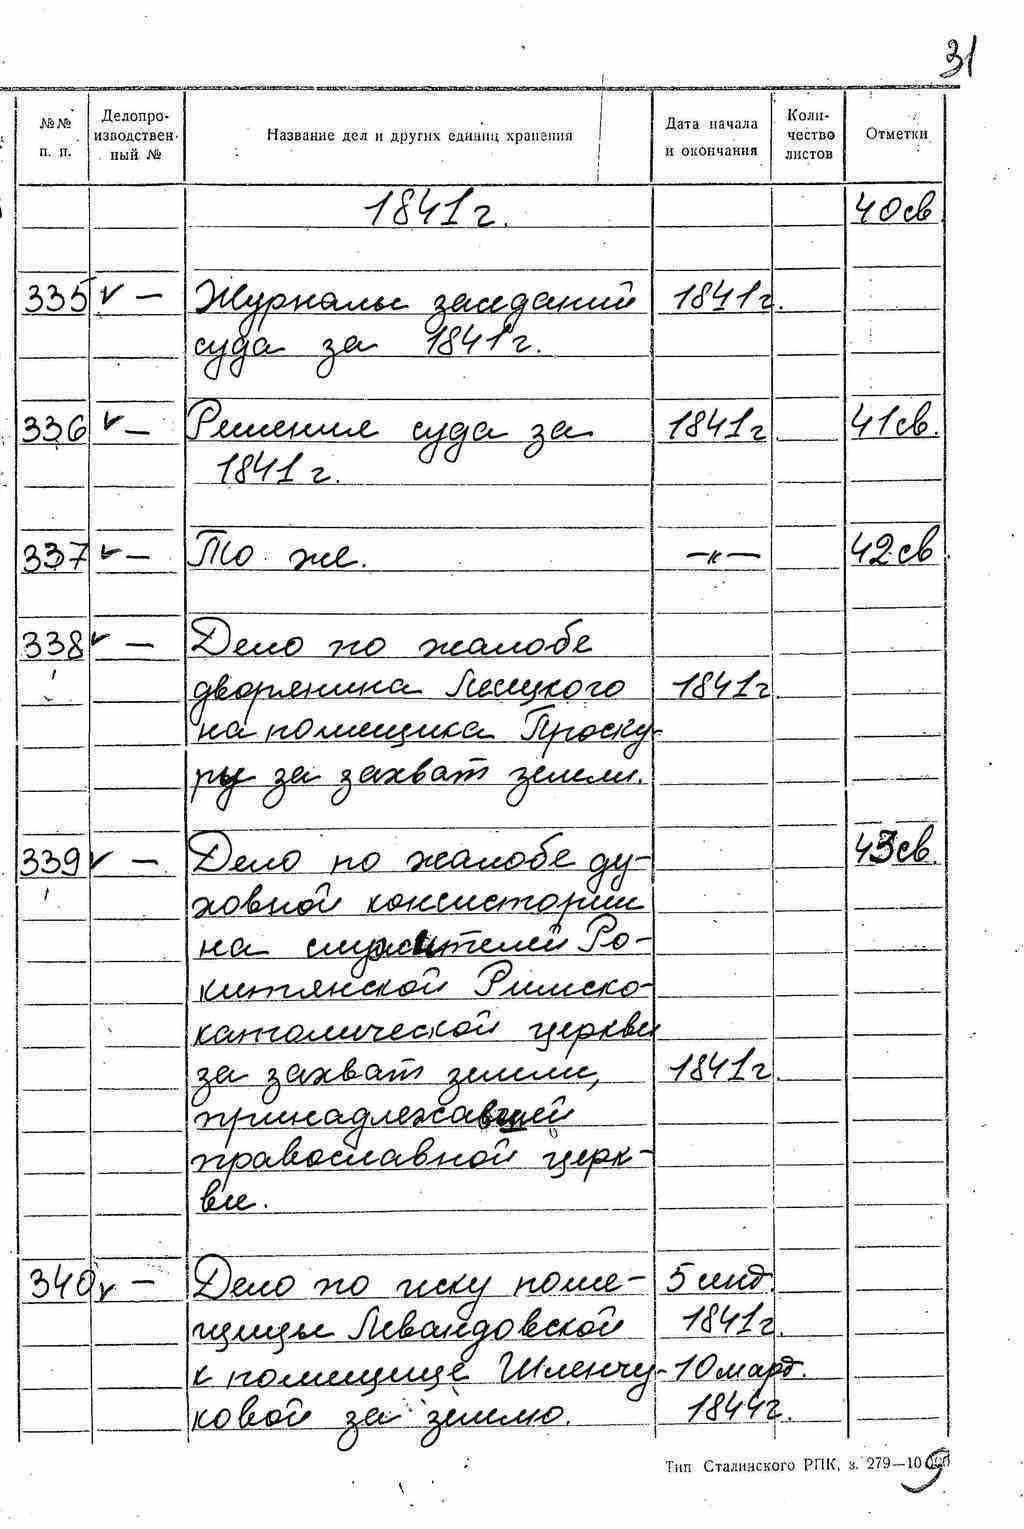 31
№№ п. п. Делопро-изводствен-ный № Название дел и других единиц хранения Дата начала и окончания Коли-чество листов Отметки
1841 г. 40 св.
335 v — Журналы заседаний 1841 г.
суда за 1841 г.
336 v — Решения суда за 1841 г 41 св.
1841 г.
337 v — То же. —"— 42 св
338 v — Дело по жалобе
дворянина Лещкого 1841 г
на помещика Проску-
ры за захват земли.
339 v — Дело по жалобе ду- 43 св.
ховной консистории
на служителей Ро-
китянской Римско-
католической церкви
за захват земли, 1841 г
принадлежавшей
православной церк-
ви.
340 v — Дело по иску поме- 5
щицы Левандовской 1841 г.
к помещице Шленчу- 10 март.
ковой за землю. 1844 г.
Тип Сталинского РПК, з. 279—10
9